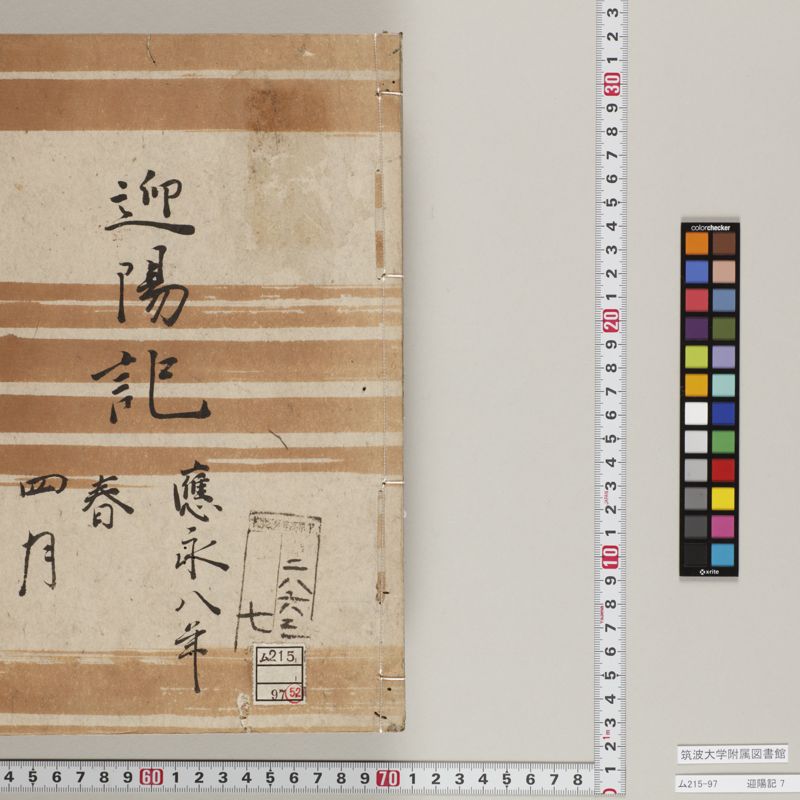 迎陽記
應永八年
春
四月
二八六三
七
ム215
97
52
colorchecker
x-rite
3 2 1 30 9 8 7 6 5 4 3 2 1 20 9 8 7 6 5 4 3 2 1 10 9 8 7 6 5 4 3 2 1
1m
4 5 6 7 8 9 60 1 2 3 4 5 6 7 8 9 70 1 2 3 4 5 6 7 8
筑波大学附属図書館
ム215-97 迎陽記 7